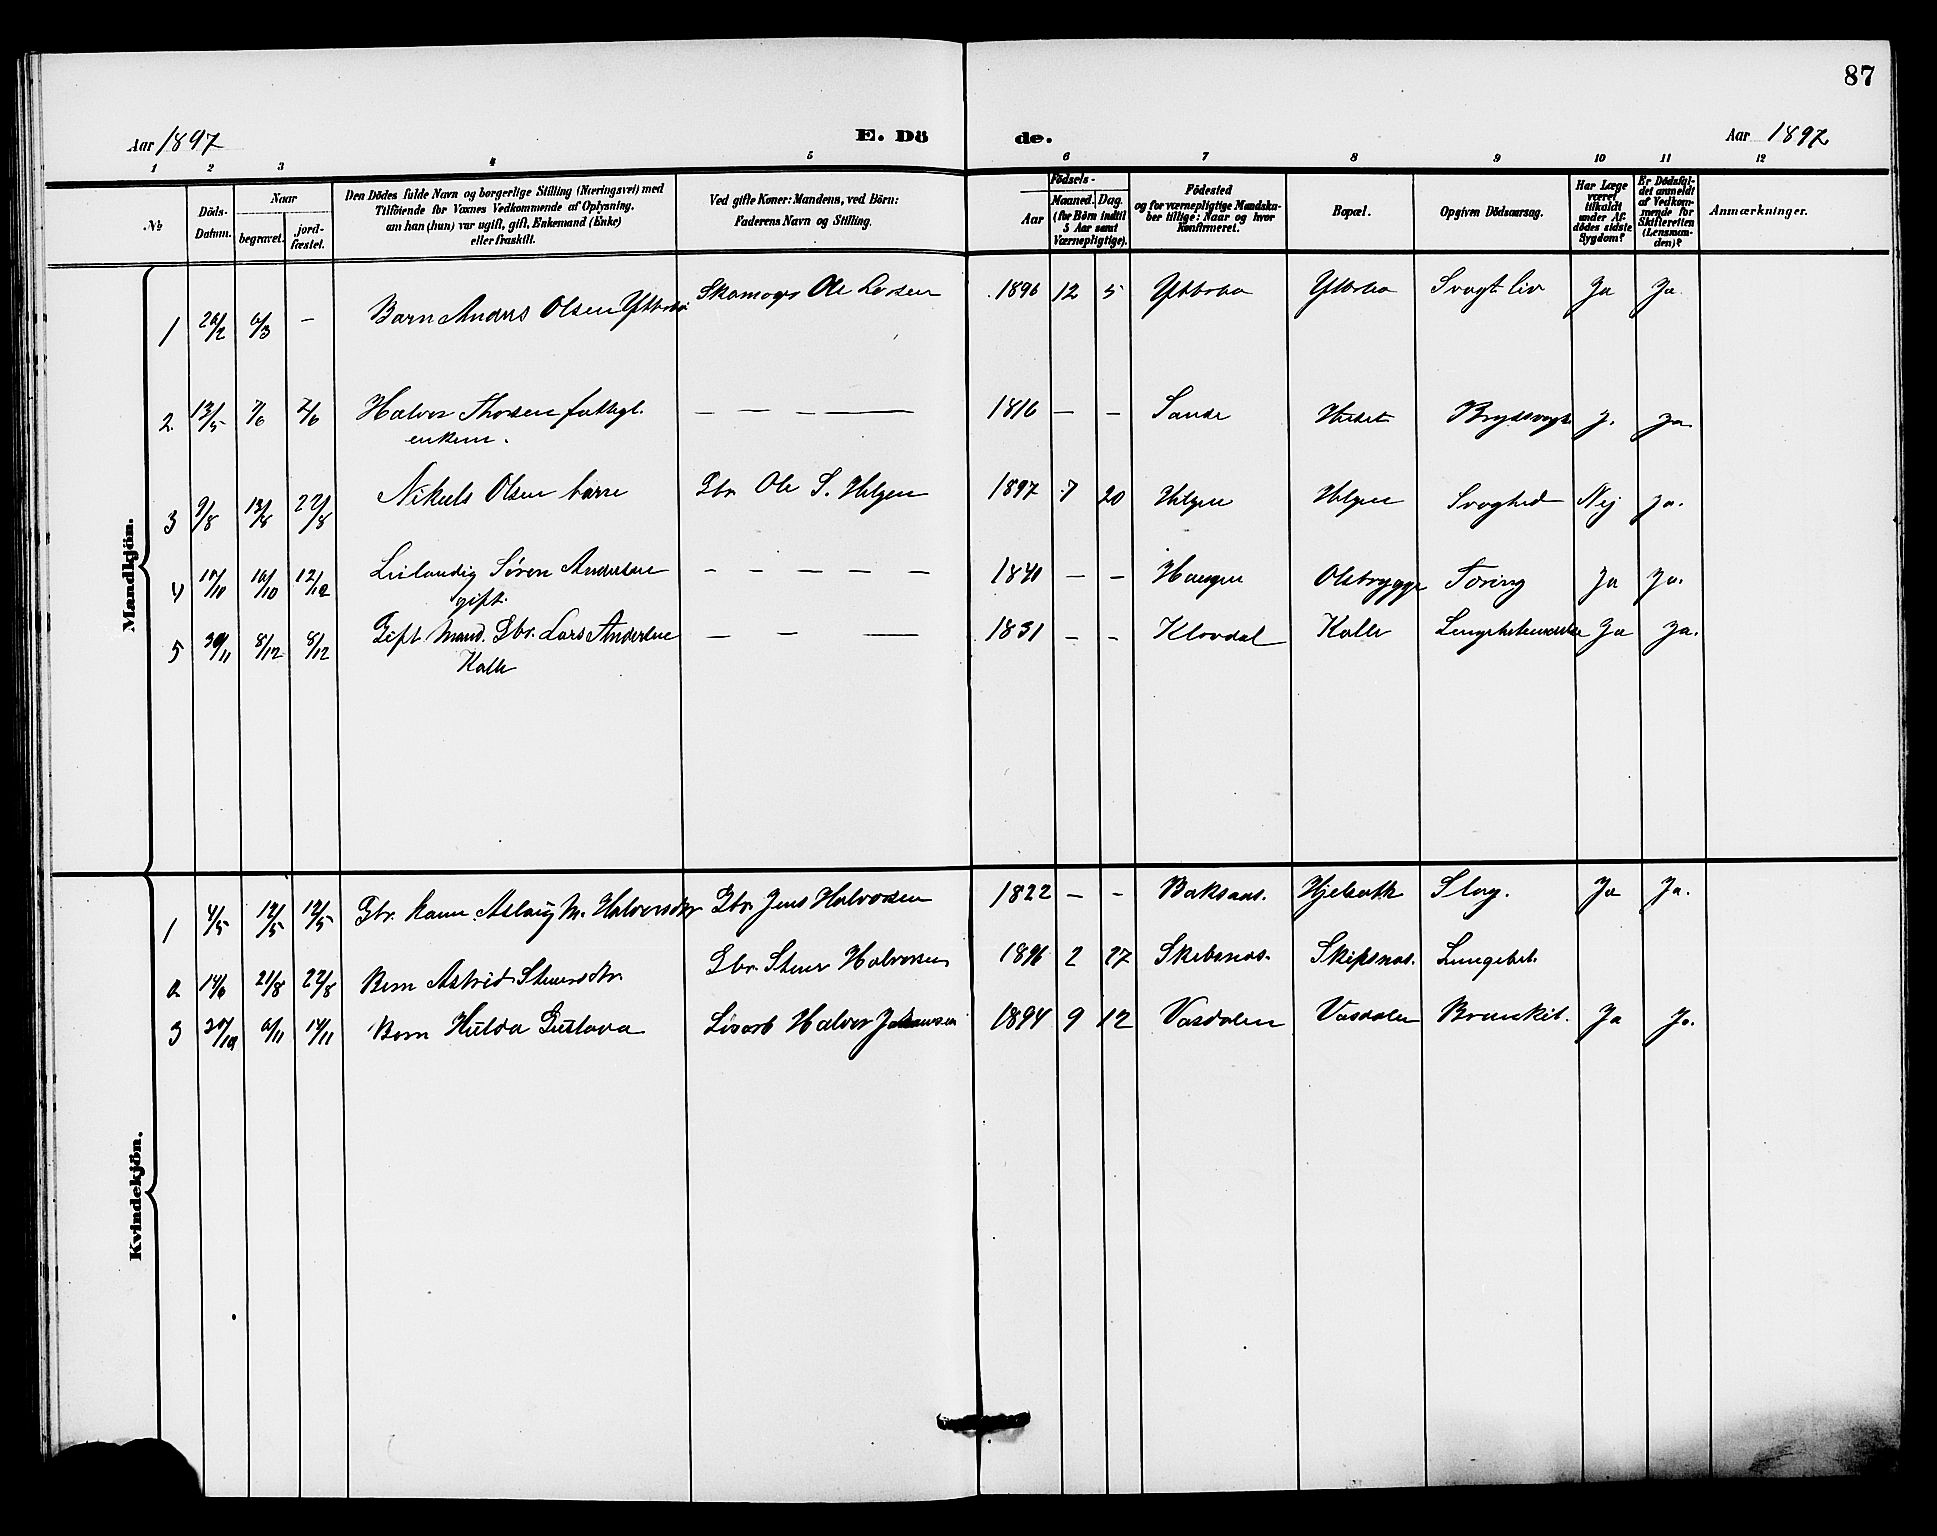 87
Aar 1897
E. Dö
de.
Aar 1897
1 2 3 4 5 6 7 8 9 10 11 12
№
Döds-
Datum.
Naar
begravet.
jord-
fæstet.
Den Dödes fulde Navn og borgerlige Stilling (Næringsvei) med
Tilföiende for Voxnes Vedkommende af Oplysning,
om han (hun) var ugift, gift, Enkemand (Enke)
eller fraskilt.
Ved gifte Koner: Mandens, ved Börn:
Faderens Navn og Stilling.
Födsels-
Aar
Maaned.
Dag.
(for Börn indtil
5 Aar samt
Værnepligtige).
Födested
og for værnepligtige Mandska-
ber tillige: Naar og hvor
Konfirmeret.
Bopæl.
Opgiven Dödsaarsag.
Har Læge
været
tilkaldt
under Af-
dödes sidste
Sygdom?
Er Dödsfal-
det anmeldt
af Vedkom-
mende for
Skifteretten
(Lensman-
den)?
Anmærkninger.
Mandkjön.
1 26/2 6/3 — Barn Anders Olsen Ole Larsen 1896 12 5 Svagt liv Ja Ja
2. 13/5 7/6 7/6 Halvor fattigl. — — — — 1816 — — Sande J. Ja
enkem.
3 9/8 13/8 22/8 Nikuls Olsen barn Gbr. Ole S. Helgen 1897 7 20 Helgen Helgen Svaghed Nej Ja.
4 10/10 12/10 Søren Andersen — — — — — — — Haugen Olsbrygge Tæring Ja Ja.
gift.
5 30/11 8/12 8/12 Gift Mand. Gbr. Lars Andersen — — — 1831 — — Klovdal Kalle Ja Ja.
Kalle
Kvindekjön.
1 4/5 12/5 12/5 Gbr. kone Aslaug M. Halvorsdtr Gbr. Jens Halvorsen 1822 — — Baksaas. Slag. Ja Ja.
2 14/6 21/8 22/8 Barn Astrid Gbr. Halvorsen 1896 2 27 Skibsnæs. Skipsnæs. Lungebet.
3 6/11 14/11 Barn Hulda Gustava Halvor Johansen 1894 9 12 Vasdalen Vasdalen Ja Ja.